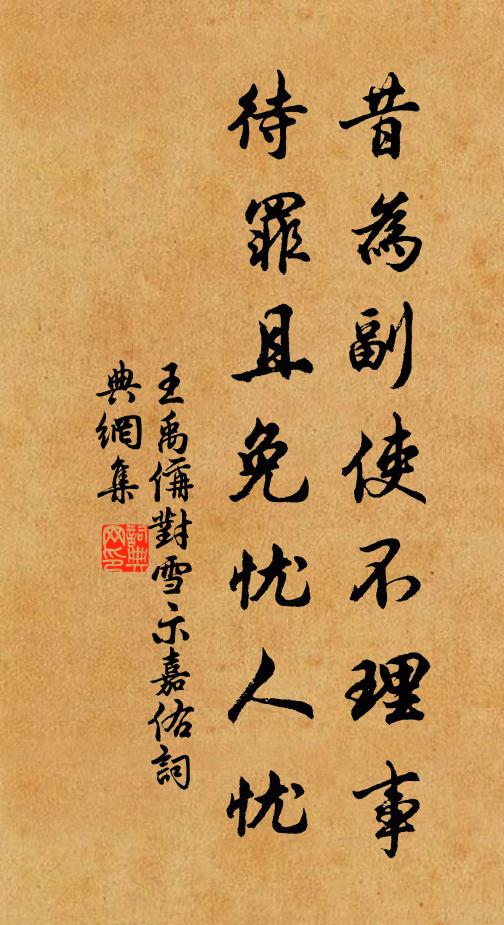 昔為副使不理事
待罪且免忧人忧
王禹偁對雪示嘉佑詞
典網集
詞典网印